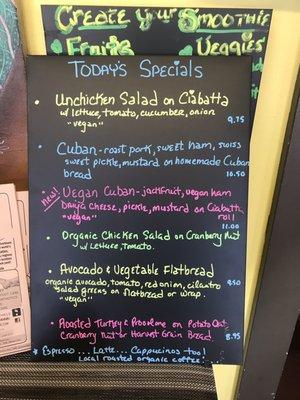 Create Your Smoothie
Fruits
Veggies
Today's Specials
• Unchicken Salad on Ciabatta
w/ lettuce, tomato, cucumber, onion
"vegan" 9.75
• Cuban - roast pork, sweet ham, swiss
sweet pickle, mustard on homemade Cuban
bread 10.50
new! • Vegan Cuban - jackfruit, vegan ham
Daiya cheese, pickle, mustard on Ciabatta
"vegan" roll
11.00
• Organic Chicken Salad on Cranberry Nut
w/ lettuce, tomato.
• Avocado & Vegetable Flatbread
organic avocado, tomato, red onion, cilantro 9.50
salad greens on flatbread or wrap.
"vegan"
• Roasted Turkey & Provolone on Potato Oat
Cranberry Nut or Harvest Grain Bread. 8.95
* Espresso... Latte... Cappucinos too!
Local roasted organic coffee!